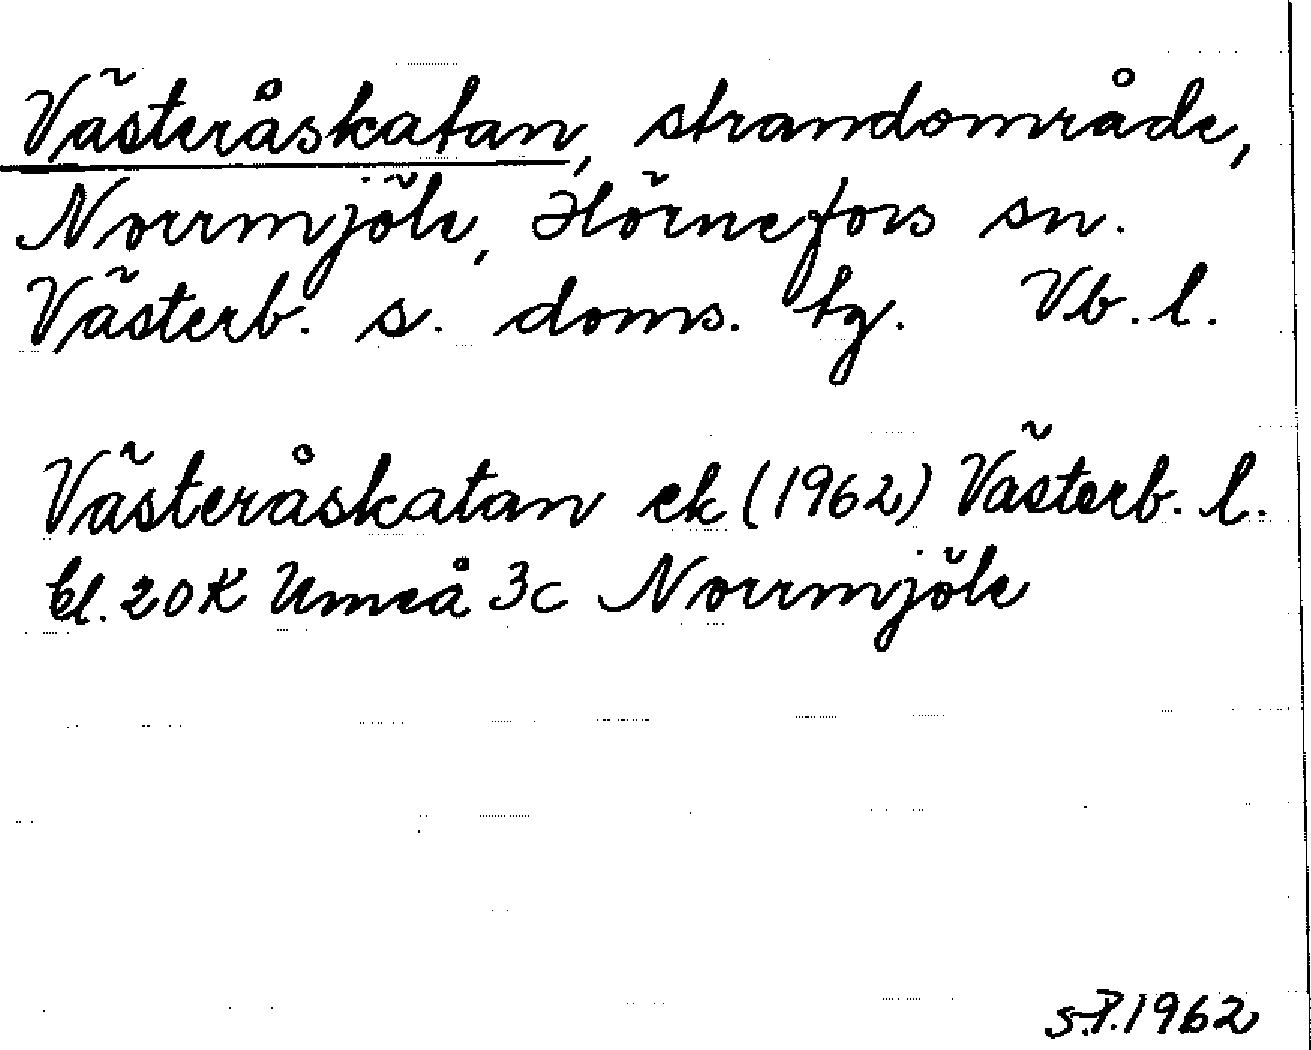 Västeråskatan, strandområde,
Norrmjöle, Hörnefors sn.
Västerb. s. doms. tg. Vb. l.
Västeråskatan ek (1962) Västerb. l.
bl. 20K Umeå 3c Norrmjöle
S.P. 1962